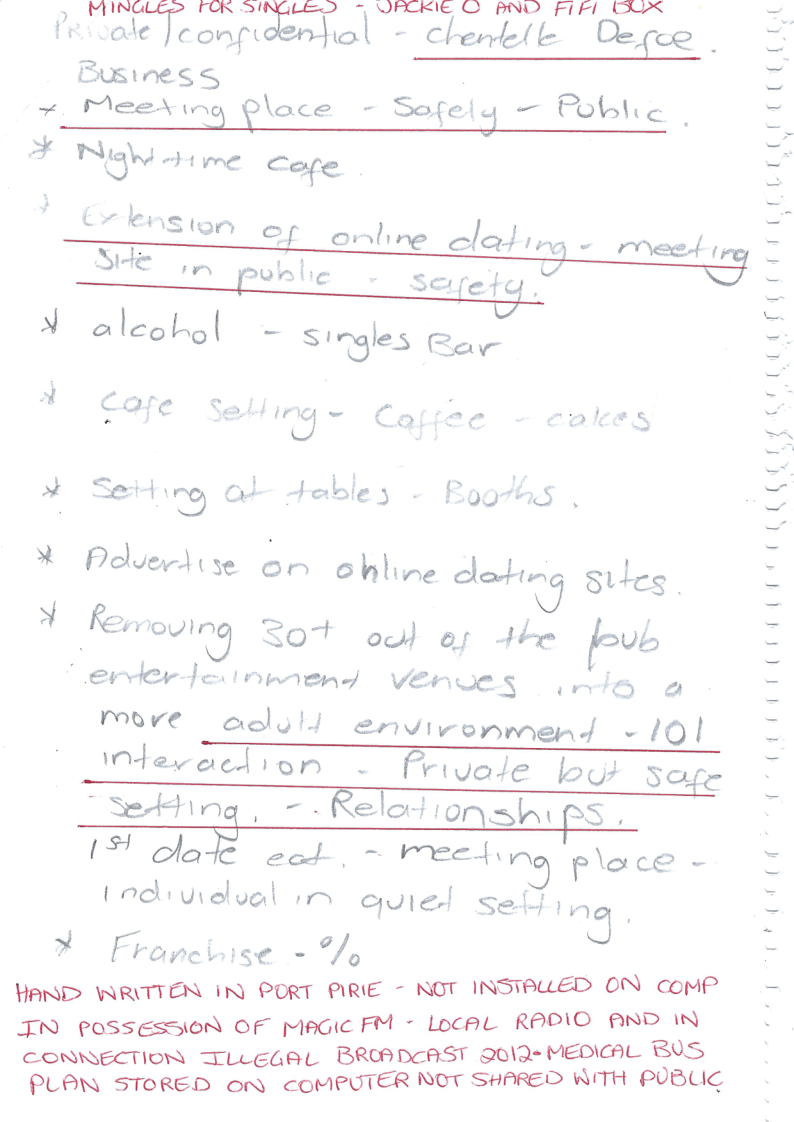 MINGLES FOR SINGLES - JACKIE O AND FIFI BOX
Private/confidential - Chentelle Defoe.
Business
* Meeting place - Safely - Public.
* Nighttime Cafe
* Extension of online dating - meeting
site in public - safety.
* alcohol - singles Bar
* Cafe setting - Coffee - cakes
* Setting at tables - Booths.
* Advertise on online dating sites.
* Removing 30+ out of the pub
entertainment venues into a
more adult environment - 101
interaction - Private but safe
setting. - Relationships.
1st date eat. - meeting place -
individual in quiet setting.
* Franchise - %
HAND WRITTEN IN PORT PIRIE - NOT INSTALLED ON COMP
IN POSSESSION OF MAGIC FM - LOCAL RADIO AND IN
CONNECTION ILLEGAL BROADCAST 2012 - MEDICAL BUS
PLAN STORED ON COMPUTER NOT SHARED WITH PUBLIC